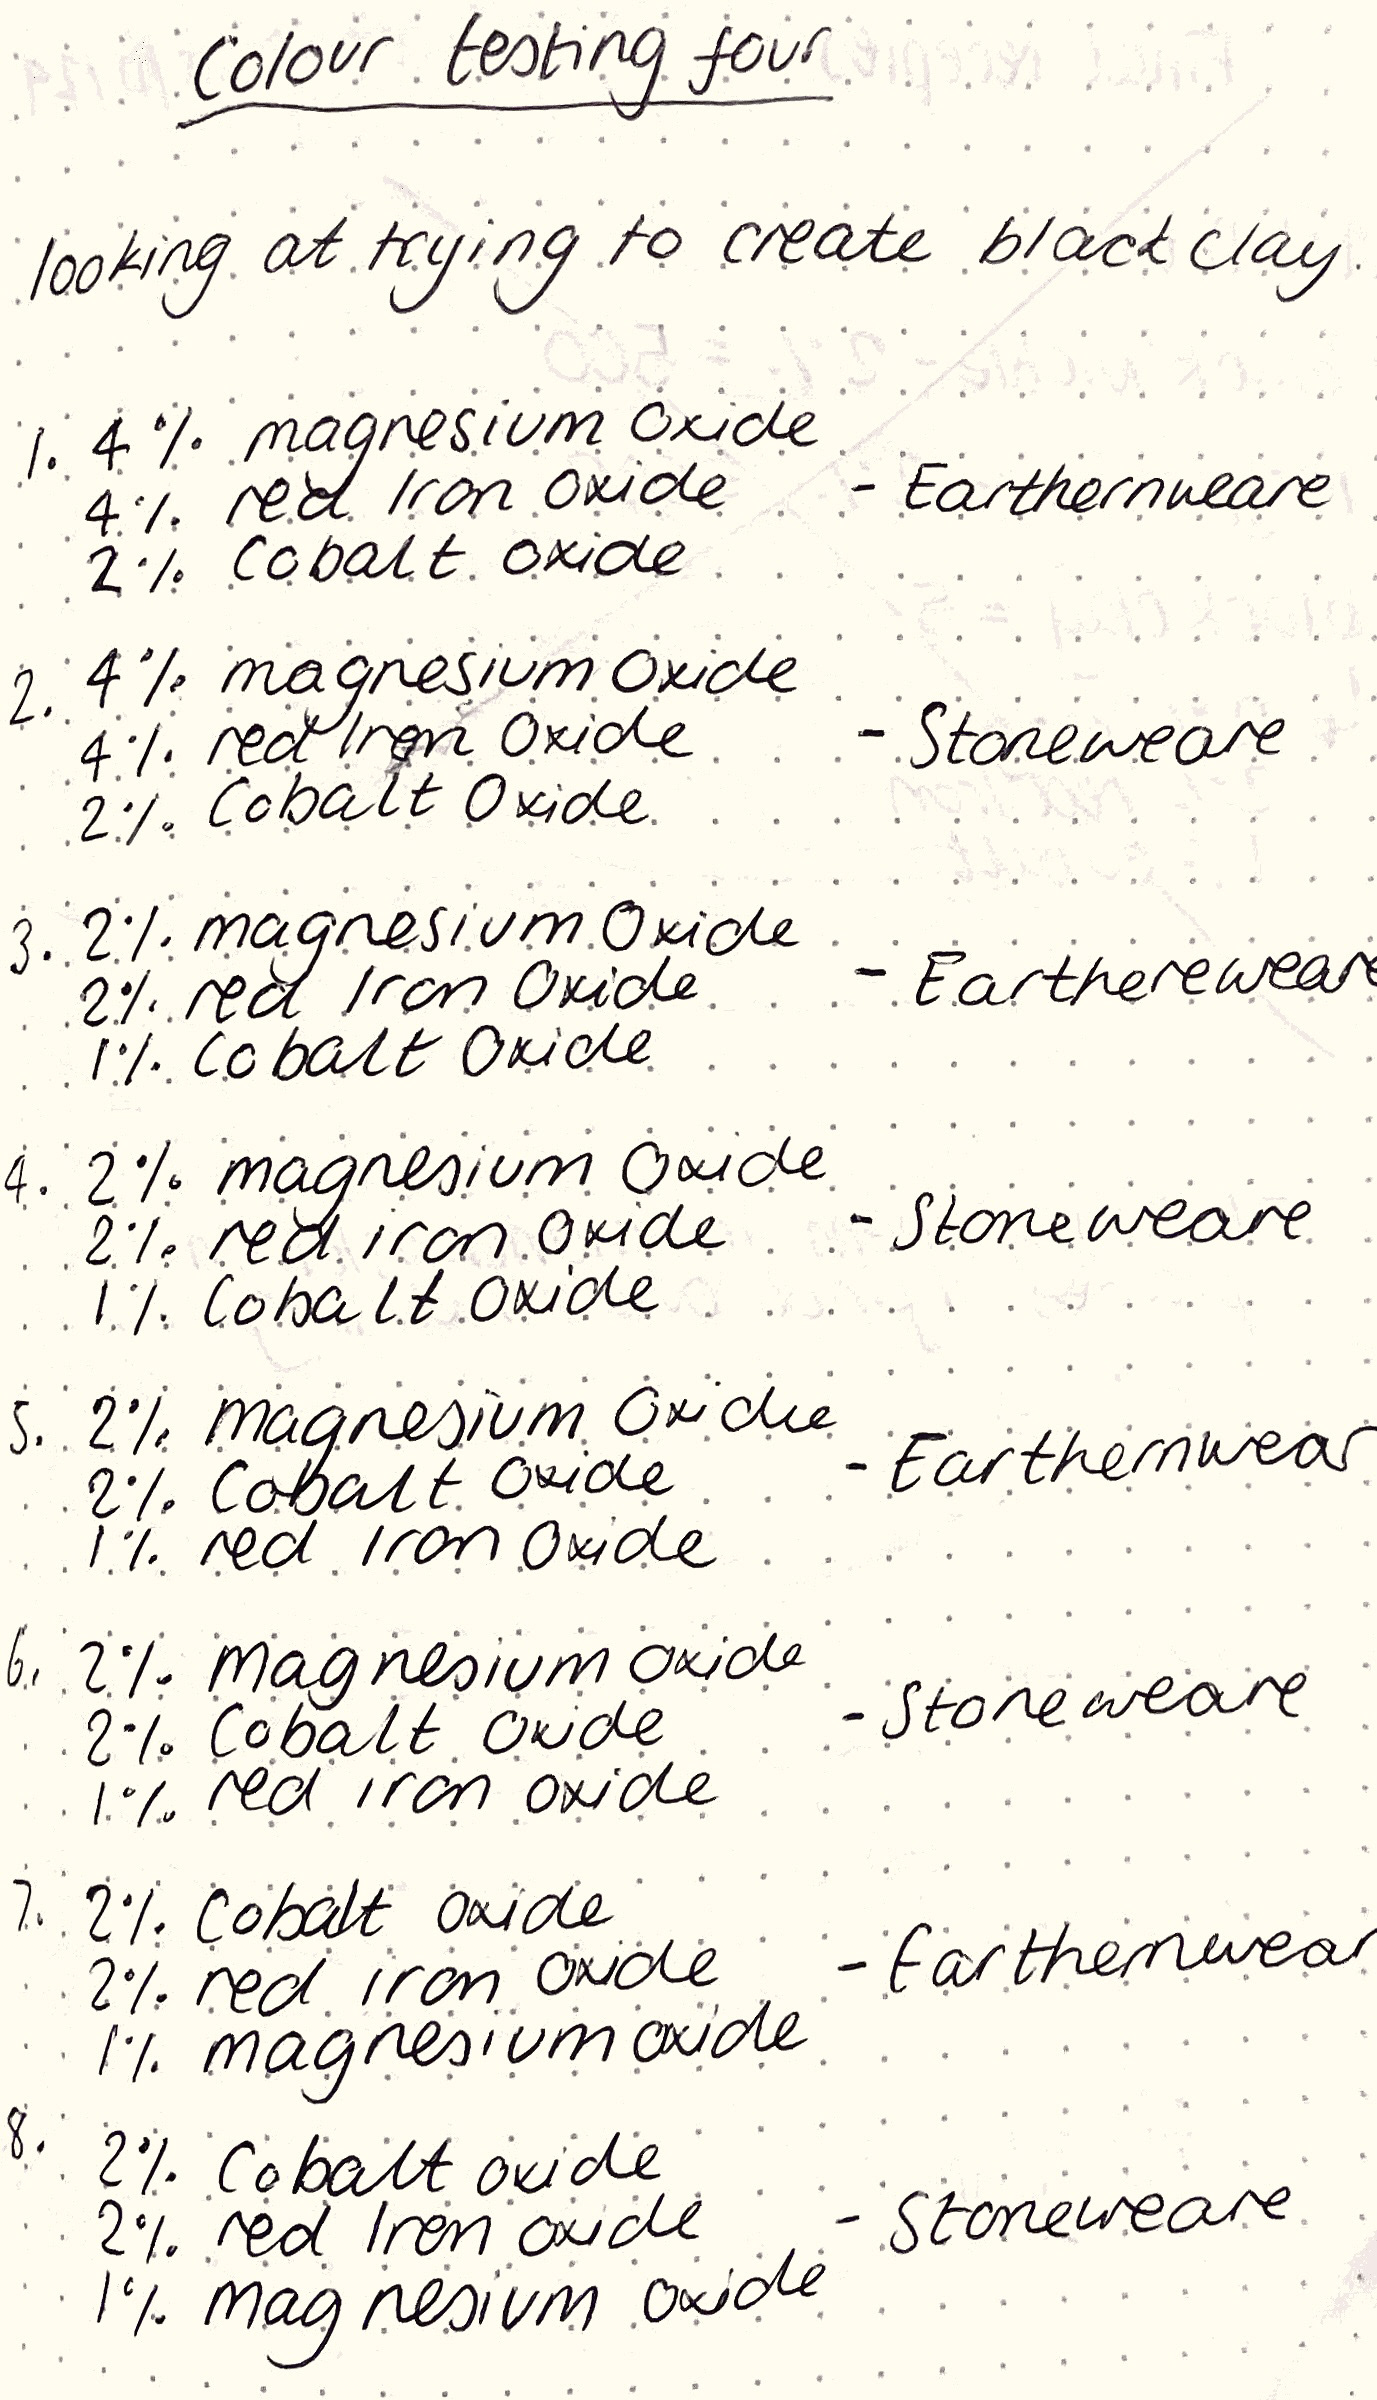 Colour testing four
looking at trying to create black clay.
1. 4% magnesium Oxide
4% red Iron Oxide - Earthernweare
2% Cobalt oxide
2. 4% magnesium Oxide
4% red Iron Oxide - Stoneweare
2% Cobalt Oxide
3. 2% magnesium Oxide
2% red Iron Oxide - Earthereweare
1% Cobalt Oxide
4. 2% magnesium Oxide
2% red iron Oxide - Stoneweare
1% Cobalt Oxide
5. 2% Magnesium Oxide
2% Cobalt Oxide - Earthernwear
1% red Iron Oxide
6. 2% Magnesium oxide
2% Cobalt oxide - Stoneweare
1% red iron oxide
7. 2% Cobalt oxide
2% red iron oxide - Earthernwear
1% magnesium oxide
8. 2% Cobalt oxide
2% red Iron oxide - Stoneweare
1% Magnesium oxide